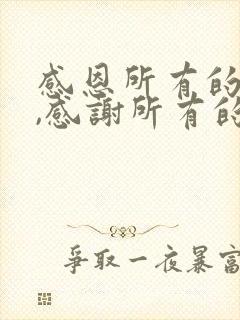 感恩所有的
,感謝所有的
爭取一夜暴富